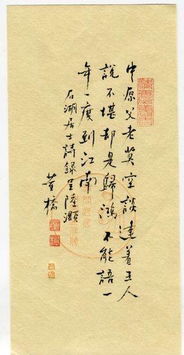 中原父老莫空談逢着王人
說不堪却是歸鴻不能語一
年一度到江南
石湖居士詩錄呈陸灝
董橋